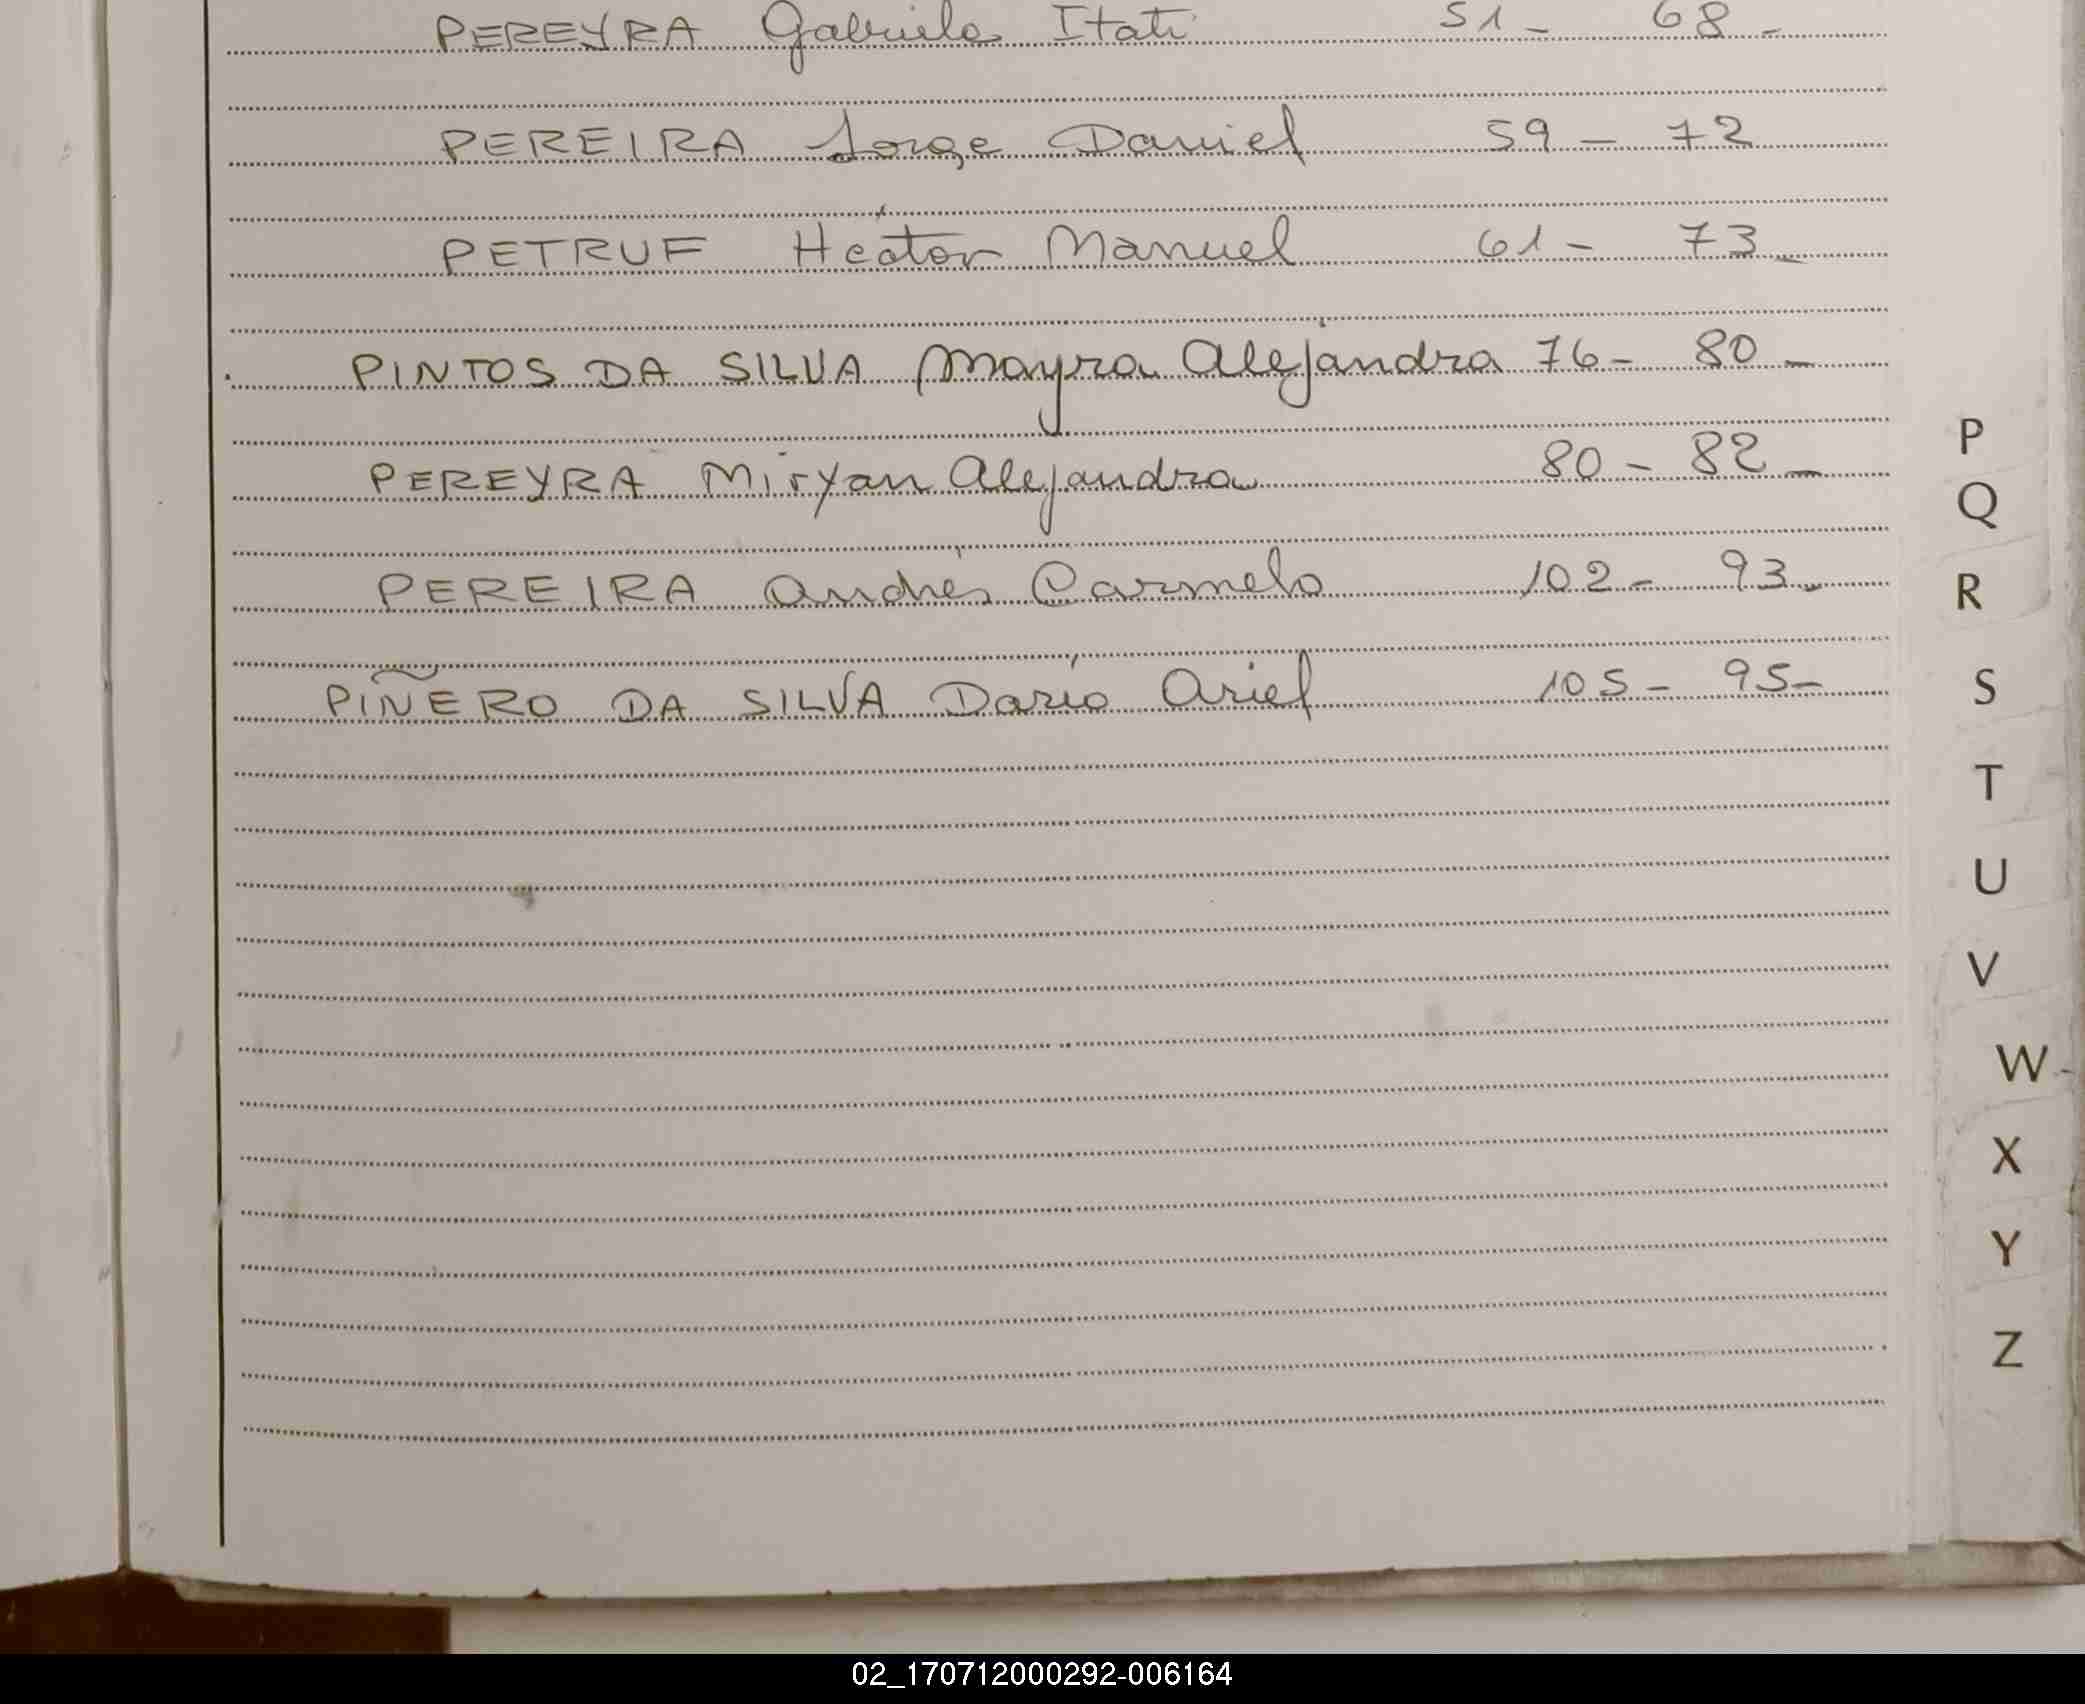 PEREYRA Gabriela Itatí 51 - 68 -
PEREIRA Jorge Daniel 59 - 72
PETRUF Héctor Manuel 61 - 73 -
PINTOS DA SILVA Mayra Alejandra 76 - 80 -
PEREYRA Miryan Alejandra 80 - 82 -
PEREIRA Andrés Carmelo 102 - 93 -
PIÑERO DA SILVA Darío Ariel 105 - 95 -
P
Q
R
S
T
U
V
W
X
Y
Z
02_170712000292-006164